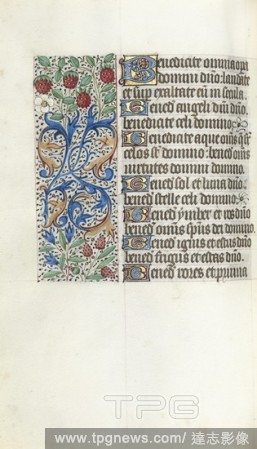 Benedicite omnia opa
domini dño: laudate
et sup exaltate eū in scła.
Bened angeli dñi dño:
benedicite celi domino.
Bened aque om̄s que sr̄
celos st̄ domino: bened om̄s
virtutes domini domino.
Bened sol et luna dño:
bened stelle celi domino.
Bened ymber et ros dño
bened om̄s sp̄us dei domino.
Bened ignis et estus dño
bened frigus et estus dño.
Bened rores et pruina
TPG
www.tpgnews.com/達志影像